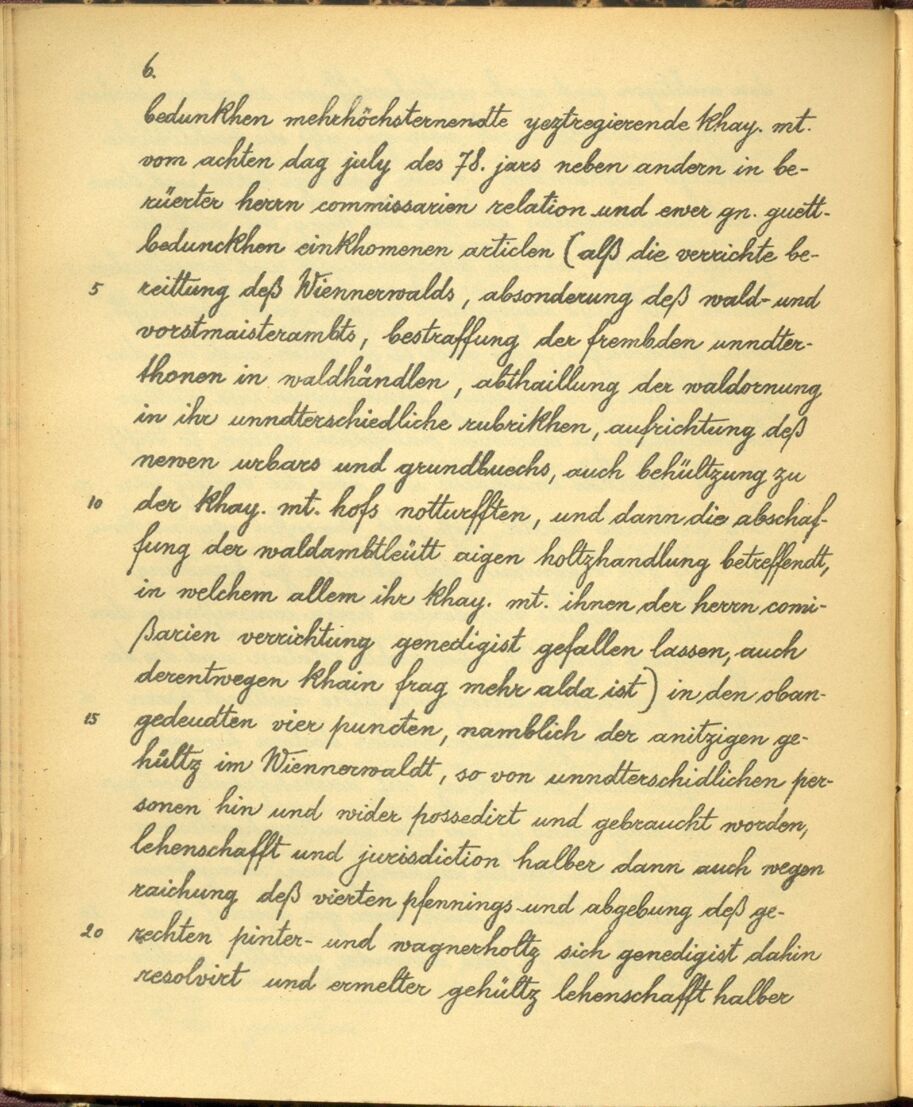 6.
bedunkhen mehrhöchsternendte yeztregierende khay. mt.
vom achten dag july des 78. jars neben andern in be-
rüerter herrn commissarien relation und ewer gn. guett-
bedunckhen einkhomenen articlen (alß die verrichte be-
5 reittung deß Wiennerwalds, absonderung deß wald- und
vorstmaisterambts, bestraffung der frembden unndter-
thonen in waldhändlen, abthaillung der waldornung
in ihr unndterschiedliche rubrikhen, aufrichtung deß
newen urbars und grundbuechs, auch behültzung zu
10 der khay. mt. hofs notturfften, und dann die abschaf-
fung der waldambtleütt aigen holtzhandlung betreffendt,
in welchem allem ihr khay. mt. ihnen der herrn comi-
ßarien verrichtung genedigist gefallen lassen, auch
derentwegen khain frag mehr alda ist) in den oban-
15 gedeudten vier puncten, namblich der anitzigen ge-
hültz im Wiennerwaldt, so von unndterschidlichen per-
sonen hin und wider possedirt und gebraucht worden,
lehenschafft und jurisdiction halber dann auch wegen
raichung deß vierten pfennings und abgebung deß ge-
20 rechten pinter- und wagnerholtz sich genedigist dahin
resolvirt und ermelter gehültz lehenschafft halber